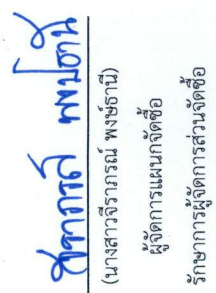 จิราภรณ์ พงษ์ธานี
(นางสาวจิราภรณ์ พงษ์ธานี)
ผู้จัดการแผนกจัดซื้อ
รักษาการผู้จัดการส่วนจัดซื้อ